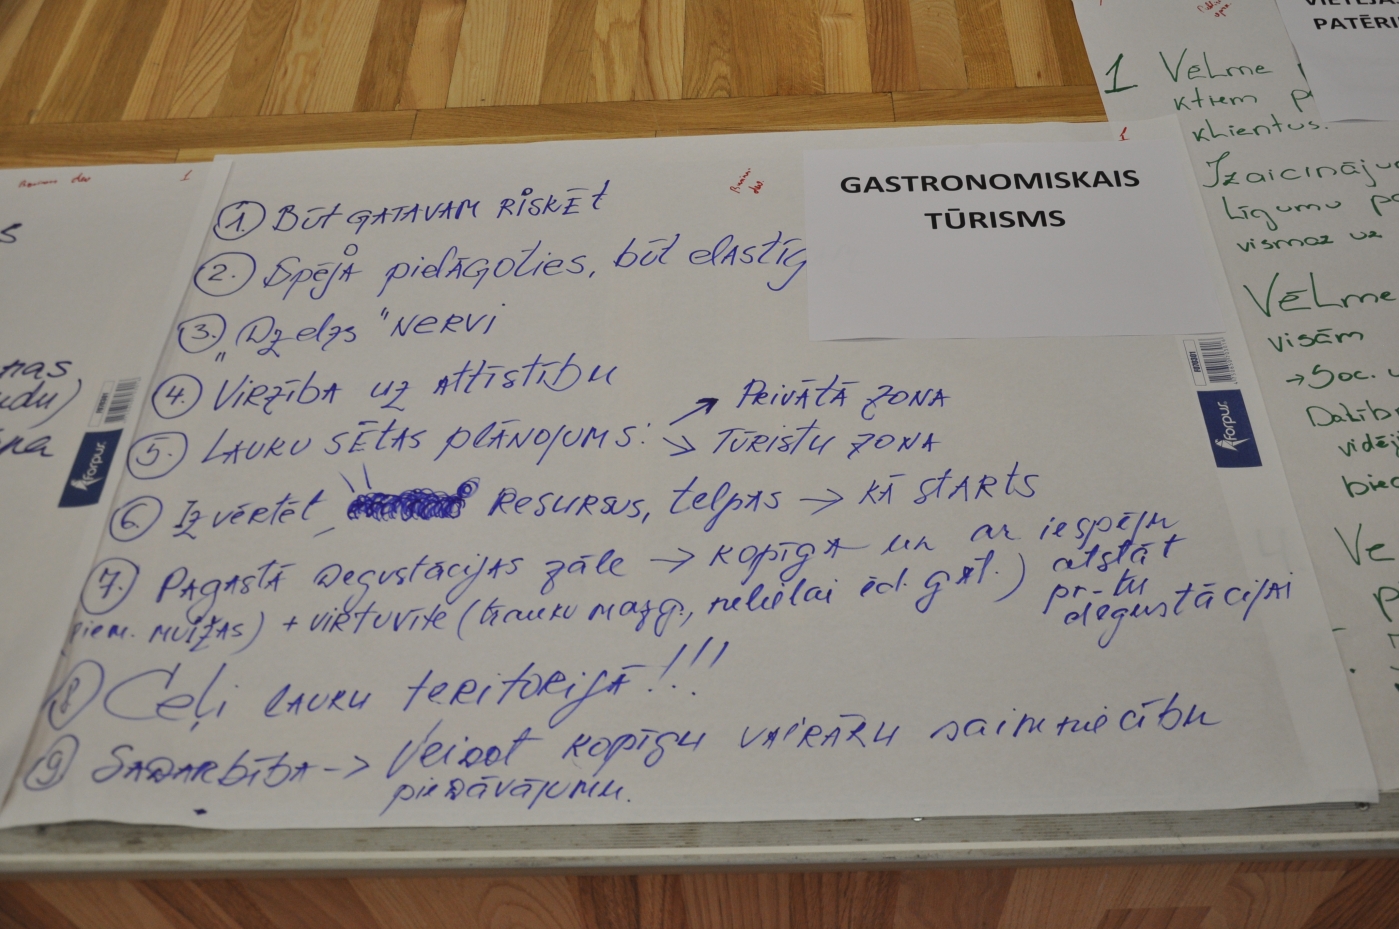 GASTRONOMISKAIS
TŪRISMS
1. BŪT GATAVAM RISKĒT
2. Spēja pielāgoties, būt elastīg
3. "Dzelzs" NERVI
4. Virzība uz attīstību
5. LAUKU SĒTAS PLĀNOJUMS: → PRIVĀTĀ ZONA
→ TŪRISTU ZONA
6. Izvērtēt RESURSUS, telpas → KĀ STARTS
7. PAGASTĀ DEGUSTĀCIJAS zāle → KOPĪGA un ar iespēju
piem. MUIŽAS) + VIRTUVĪTE (trauku mazg., nelielai ēd. gat.) atstāt
pr-tu
degustācijai
8 Ceļi LAUKU TERITORIJĀ!!!
9 SADARBĪBA -> Veidot KOPĪGU VAIRĀKU saimniecību
piedāvājumu.
s
nas
udu)
forpus
forpus
PATĒRI
1 VĒLme
ktiem p
klientus.
Izaicināju
Līgumu pa
vismaz uz
VĒLme
visām
→ Soc. u
Dalība
vidēj
bied
Ve
p